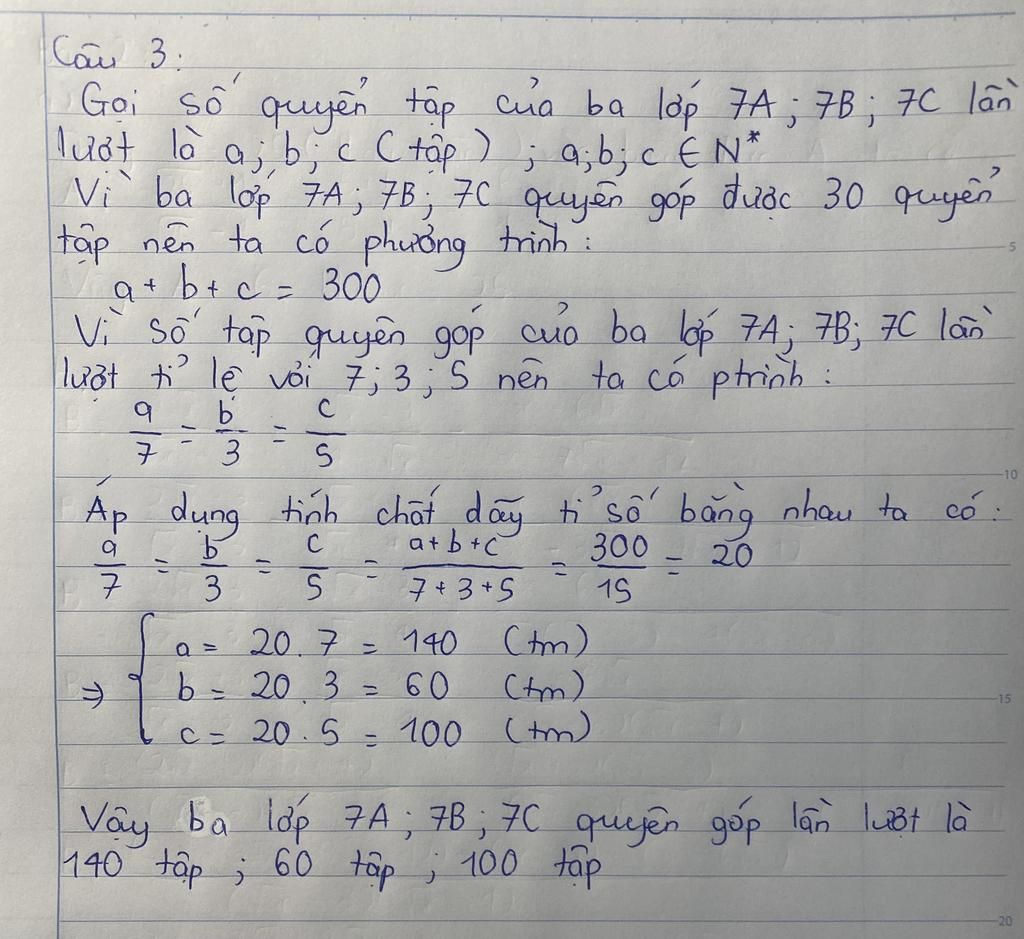 Câu 3:
Gọi số quyển tập của ba lớp 7A; 7B; 7C lần
lượt là a; b; c (tập) ; a; b; c ∈ N*
Vì ba lớp 7A; 7B; 7C quyên góp được 30 quyển
tập nên ta có phương trình:
a + b + c = 300
Vì số tập quyên góp của ba lớp 7A; 7B; 7C lần
lượt tỉ lệ với 7; 3; 5 nên ta có ptrình:
a/7 = b/3 = c/5
Áp dụng tính chất dãy tỉ số bằng nhau ta có:
a/7 = b/3 = c/5 = (a+b+c)/(7+3+5) = 300/15 = 20
⇒ { a = 20.7 = 140 (tm)
b = 20.3 = 60 (tm)
c = 20.5 = 100 (tm)
Vậy ba lớp 7A; 7B; 7C quyên góp lần lượt là
140 tập ; 60 tập ; 100 tập
5
10
15
20